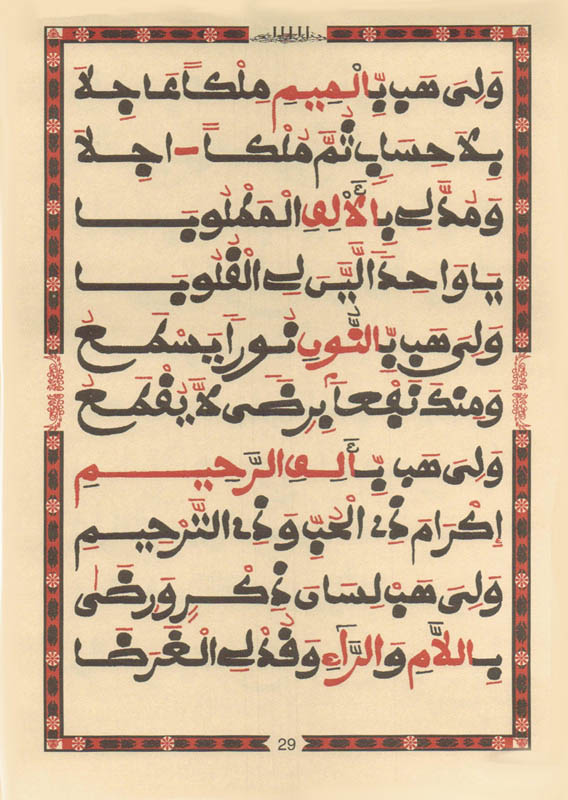 وَلِي هَب بِّالْمِيمِ مُلْكاً عَاجِلَا
بِلَا حِسَابٍ ثُمَّ مُلْكاً - اجِلَا
وَمُدَّ لِي بِالْأَلِفِ الْمَطْلُوبَا
يَا وَاحِداً لَّيِّن لِي الْقُلُوبَا
وَلِي هَب بِّالنُّونِ نُوراً يَسْطَعُ
وَمِنكَ نَفْعاً بِرِضًى لَّا يُقْطَعُ
وَلِي هَب بِّأَلِفِ الرَّحِيمِ
إِكْرَامَ ذِي الْحُبِّ وَذِي التَّرْحِيمِ
وَلِي هَبْ لِسَانَ ذِكْرٍ وَرِضَى
بِاللَّامِ وَالرَّاءِ وَقُدْ لِي الْغَرَضَا
29